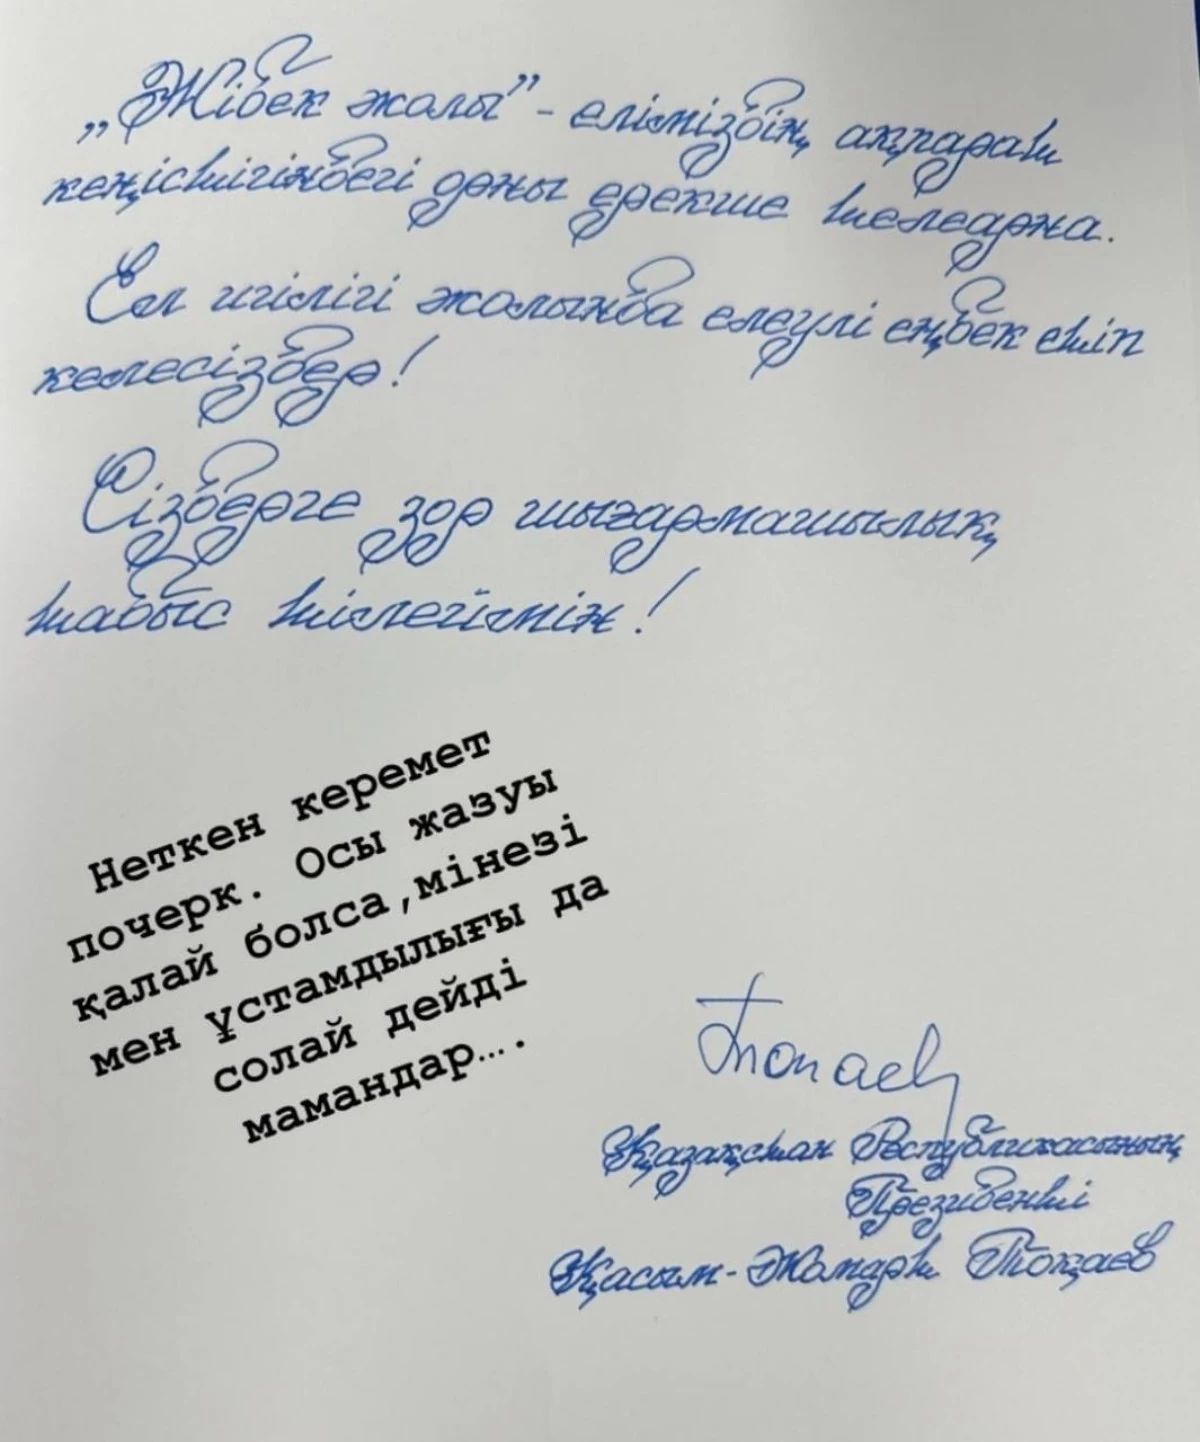 „Жібек жолы” - еліміздің ақпарат
кеңістігіндегі орны ерекше телеарна.
Ел игілігі жолында елеулі еңбек етіп
келесіздер!
Сіздерге зор шығармашылық
табыс тілеймін!
Неткен керемет
почерк. Осы жазуы
қалай болса,мінезі
мен ұстамдылығы да
солай дейді
мамандар….
Тоқаев
Қазақстан Республикасының
Президенті
Қасым-Жомарт Тоқаев